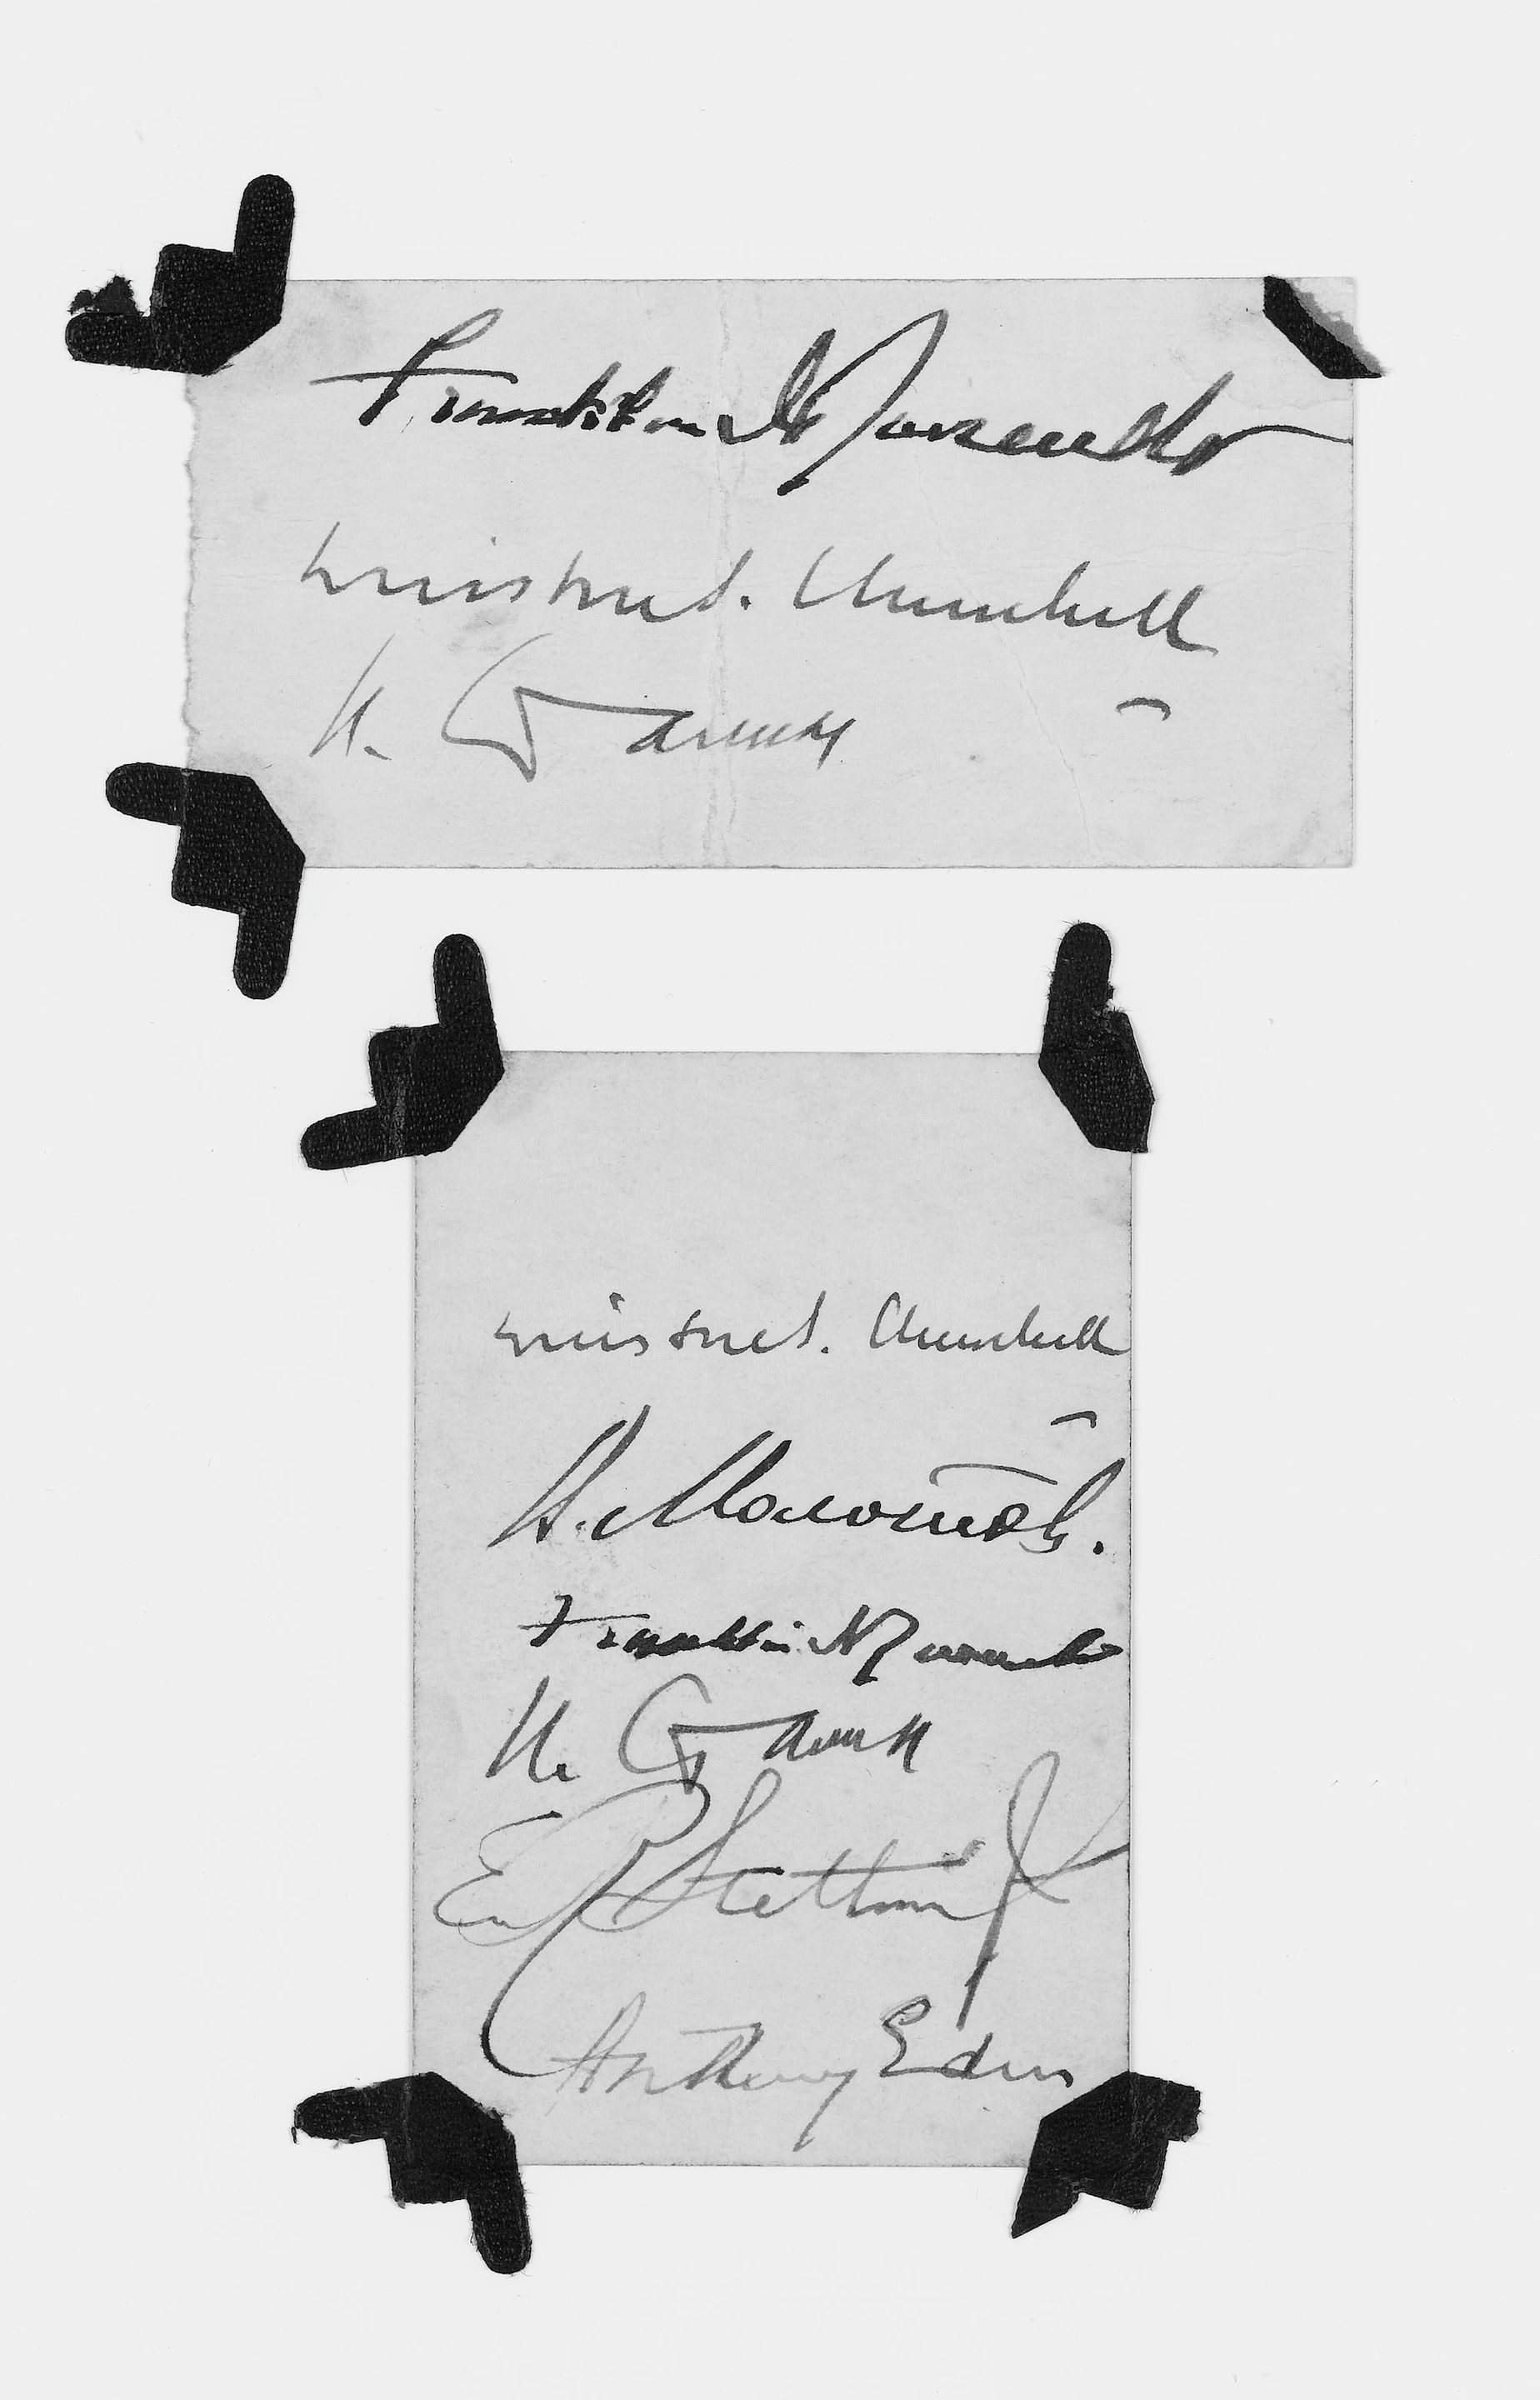 Franklin D Roosevelt
Winston S. Churchill
И. Сталин
Winston S. Churchill
В. Молотов.
Franklin D Roosevelt
И. Сталин
E R Stettinius Jr
Anthony Eden